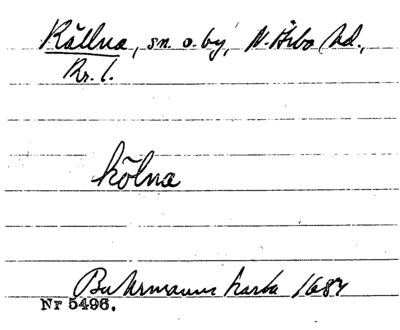 Källna, sn. o. by, N. Åsbo hd.,
Kr. l.
kölna
Buhrmanns karta 1684
Nr 5496.